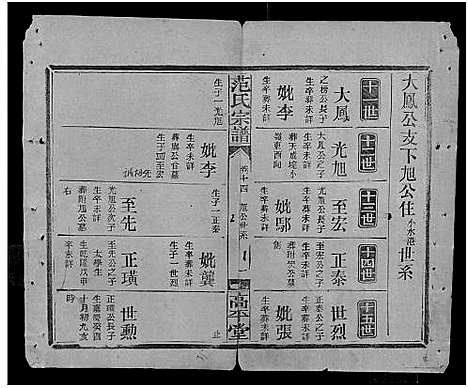 大鳳公支下旭公住小水港世系
十一世
大鳳
之榜公長子
生卒葬未詳
妣李
生卒葬未詳
生子一光旭
十二世
光旭
大鳳公之子
生卒未詳
妣李
生卒未詳
十三世
至宏
光旭公長子
生卒葬未詳
妣鄢
生卒葬未詳
生子一正泰
至先
光旭公次子
生卒未詳
十四世
正泰
至宏公之子
生卒葬未詳
妣龔
生卒葬未詳
生子一世烈
正璜
至先公之子
太學生
十五世
世烈
正泰公之子
生卒葬未詳
妣張
生卒葬未詳
止
世勲
正璜公長子
十月初九亥
時
范氏宗譜
高平堂